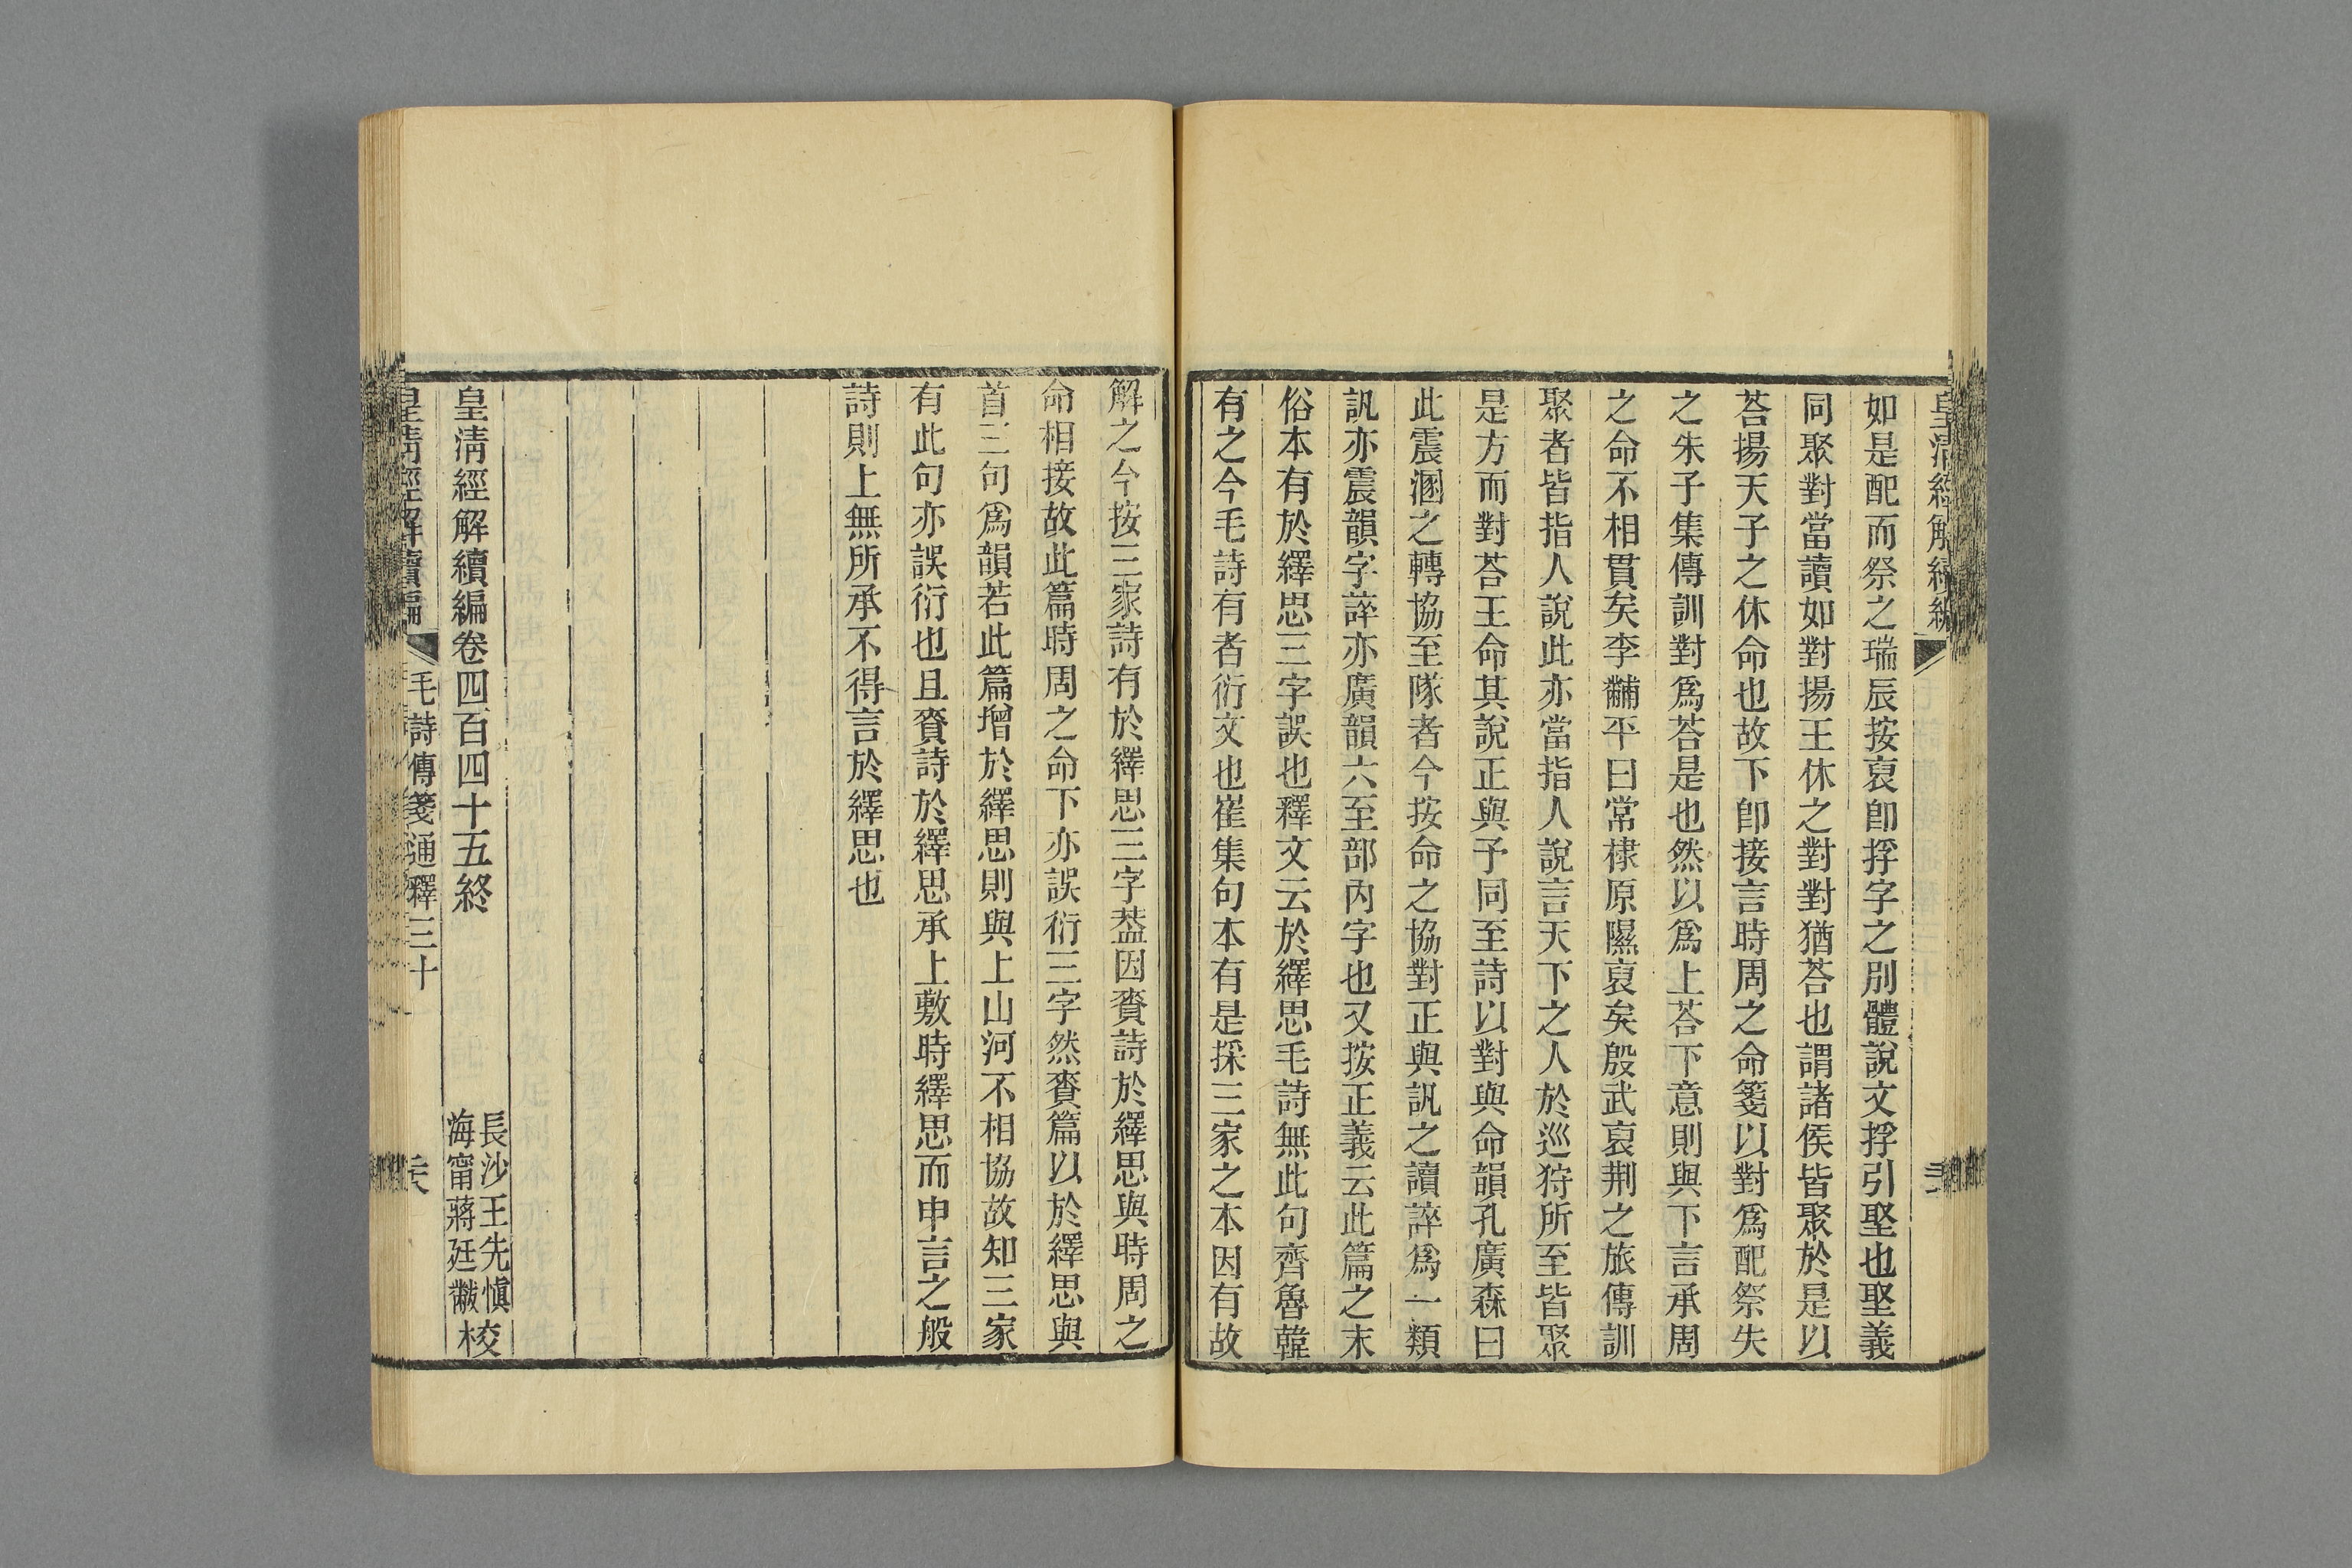 皇清經解續編
如是配而祭之瑞辰按裒卽捊字之別體說文捊引埾也埾義
同聚對當讀如對揚王休之對對猶荅也謂諸侯皆聚於是以
荅揚天子之休命也故下卽接言時周之命箋以對爲配祭失
之朱子集傳訓對爲荅是也然以爲上荅下意則與下言承周
之命不相貫矣李黼平曰常棣原隰裒矣殷武裒荆之旅傳訓
聚者皆指人說此亦當指人說言天下之人於巡狩所至皆聚
是方而對荅王命其說正與予同至詩以對與命韻孔廣森曰
此震溷之轉協至隊者今按命之協對正與訊之讀誶爲一類
訊亦震韻字誶亦廣韻六至部內字也又按正義云此篇之末
俗本有於繹思三字誤也釋文云於繹思毛詩無此句齊魯韓
有之今毛詩有者衍文也崔集句本有是採三家之本因有故
解之今按三家詩有於繹思三字葢因賚詩於繹思與時周之
命相接故此篇時周之命下亦誤衍三字然賚篇以於繹思與
首三句爲韻若此篇增於繹思則與上山河不相協故知三家
有此句亦誤衍也且賚詩於繹思承上敷時繹思而申言之般
詩則上無所承不得言於繹思也
皇淸經解續編卷四百四十五終
長沙王先愼
海甯蔣廷黻
校
皇淸經解續編
毛詩傳箋通釋三十